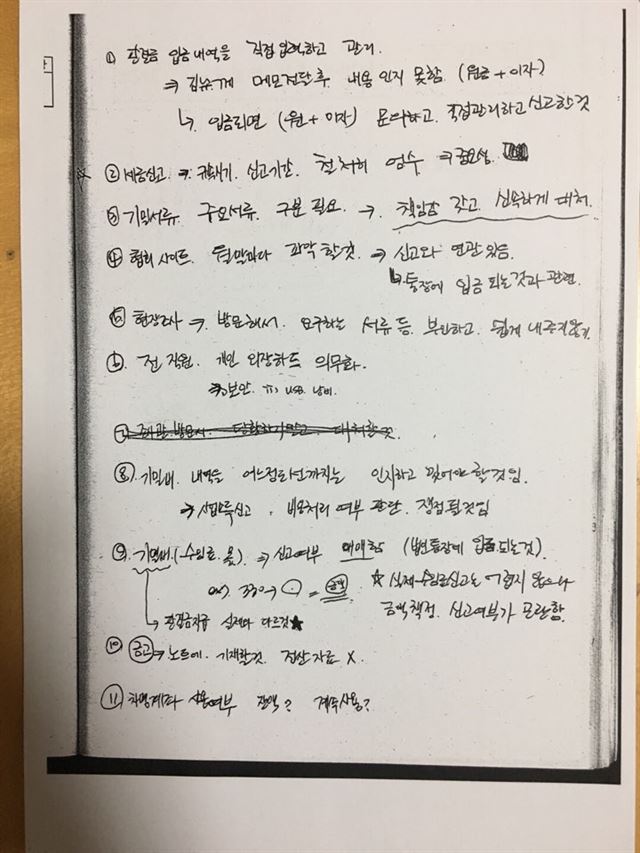 ① 잔결금 입금내역을 직접 입력하고 관리.
⇒ 김뉴게 메모전달후 내용 인지 못함 (원금 + 이자)
↳ 입금되면 (원 + 이자) 문의하고. 직접관리하고 신고할것
② 세금신고 ⇒ 귀속시기. 신고기간. 철저히 엄수 ⇒ 중요성
③ 기밀서류. 주요서류. 구분 필요. → 책임감 갖고 신속하게 대처.
④ 협회 사이트. 월말마다 파악 할것. ⇒ 신고와 연관 있음.
↳ 통장에 입금 되는것과 관련.
⑤ 현장조사 ⇒ 방문해서. 요구하는 서류 등. 부인하고. 쉽게 내주지않기
⑥ 전 직원. 개인 외장하드 의무화.
⇒ 보안. USB
⑧ 기밀비. 내역을 어느정도선까지는 인지하고 있어야 할것임.
⇒ 사업소득신고. 비용처리 여부 판단. 쟁점될것임
⑨ 기밀비 (수임료. 용) ⇒ 신고여부 애매함 (별도통장에 입금되는것).
330 → = 금액 ☆ 실제 수임료신고는 어렵지 않으나
→ 잔결금지급 실제와 다른것★ 금액책정. 신고여부가 곤란함.
⑩ 금고 ⇒ 노트에. 기재할것. 전산자료 X.
⑪ 차명계좌 사용여부 잔액? 계속사용?